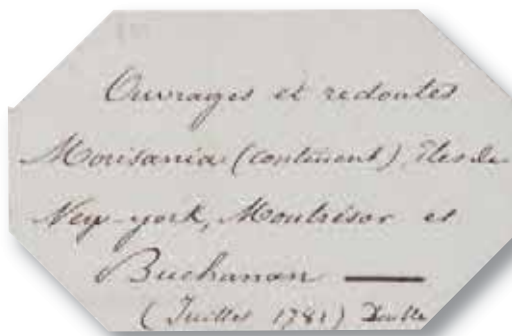 Ouvrages et redoutes
Morisania (continent), îles de
New-york, Montrésor et
Buchanan —
(Juillet 1781) Double